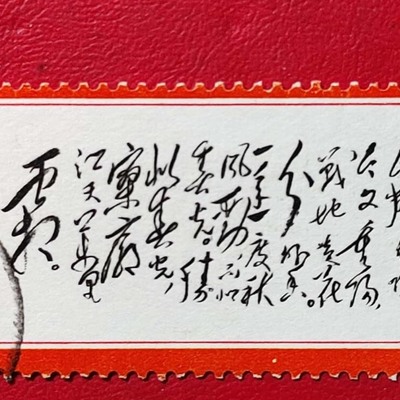 今又重陽，
戰地黄花
分外香。
一年一度秋
風勁，不似
春光。勝
似春光，
寥廓
江天萬里
霜。